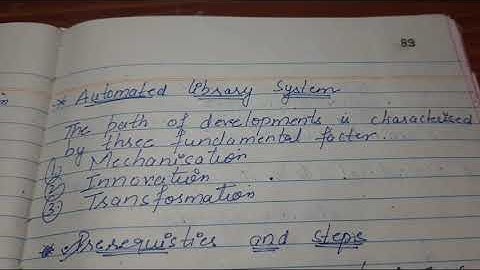 83
* Automated library System
The path of developments is characterised
by three fundamental factor...
1) Mechanication
2) Innovation
3) Transformation
* Prerequistics and steps